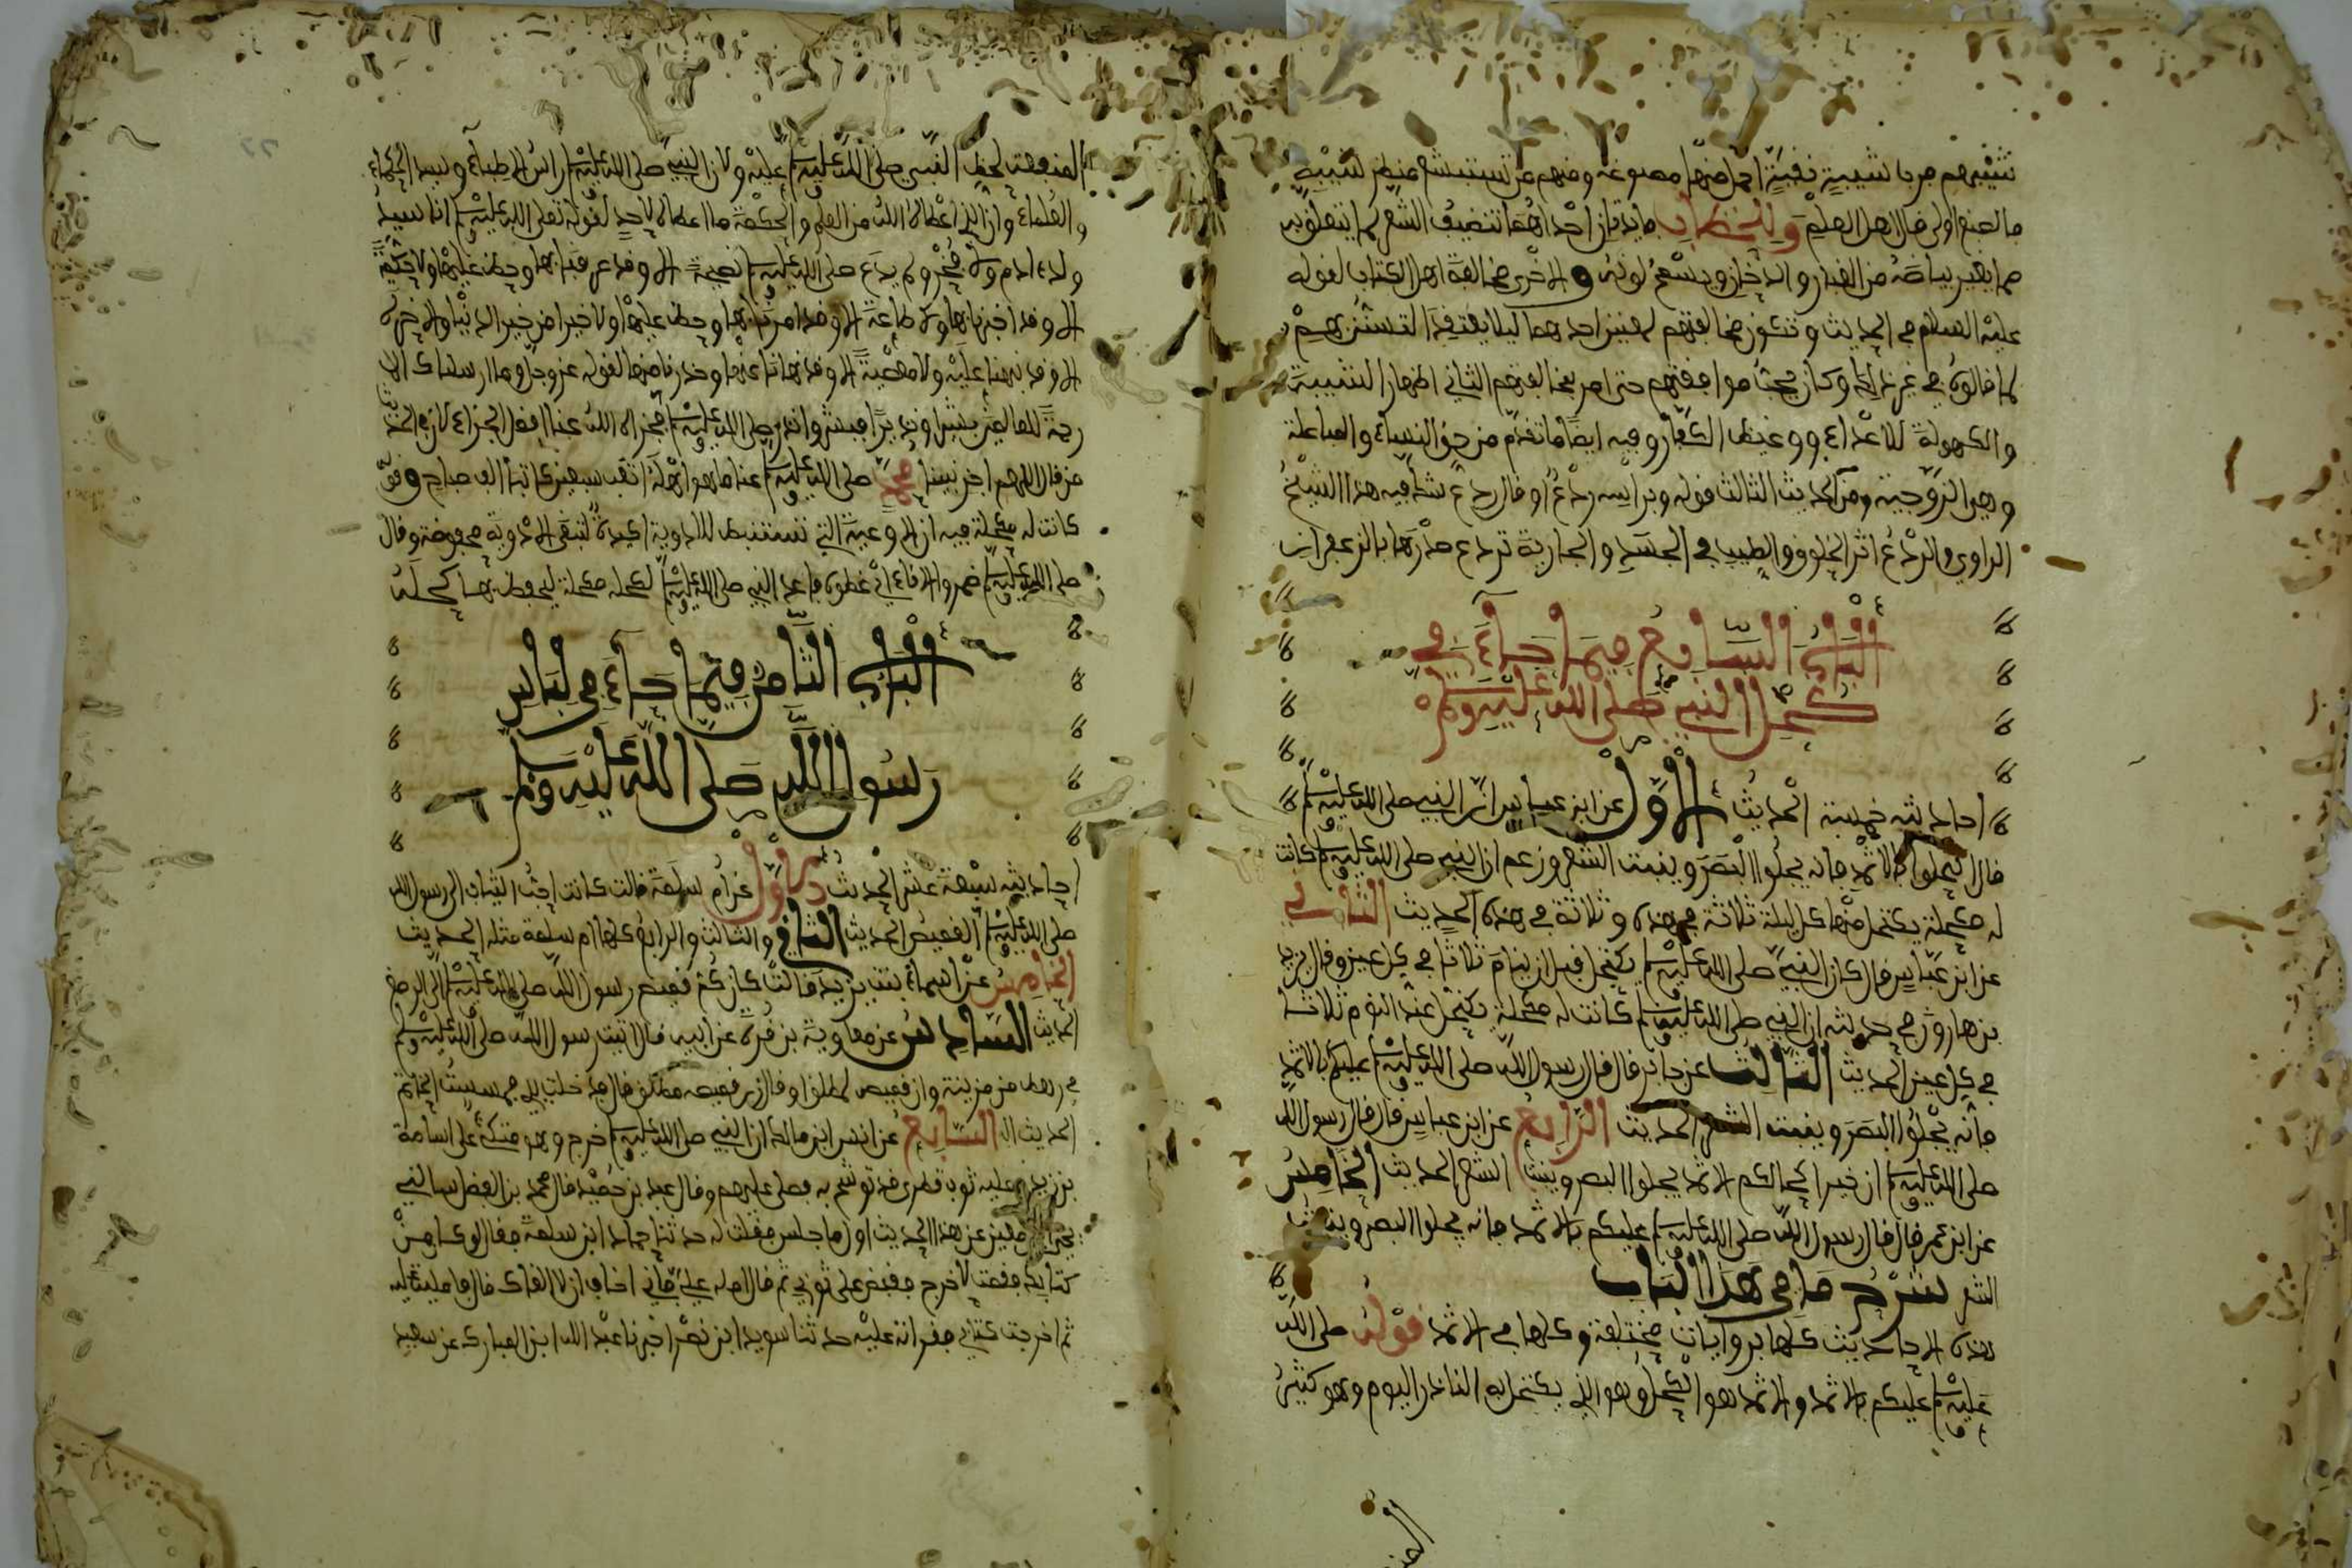 شيبهم من با شيبة نقية احمل منها مصبوغة ومنهم من تستبشع منظر شيبة
ما لصبغ اولى قال اهل العلم وللخضاب فايدتان احداهما تنضيف الشعر لما يتعلق به
مما يغير بياضه من الغبار والدخان ويسمج لونه والاخرى مخالفة اهل الكتاب لقوله
عليه السلام في الحديث وتكون مخالفتهم لمعنيين احدهما ليلا يعتقد التسنن بهم
كما قالوه في غير ذلك وكان يحب موافقتهم حتى امر بمخالفتهم الثاني اظهار الشبيبة
والكهولة للاعداء وغيظ الكفار وفيه ايضا ما تقدم من حق النساء والمباعلة
وهي الزوجية ومن الحديث الثالث قوله وبراسه ردع او قال ردغ شك فيه هذا الشيخ
الراوي والردع اثر الخلوق والطيب في الجسد والجارية تردع صدرها بالزعفران
الباب السابع فيما جاء في
كحل النبي صلى الله عليه وسلم
احاديثه خمسة الحديث الاول عن ابن عباس ان النبي صلى الله عليه وسلم
قال اكتحلوا بالاثمد فانه يجلوا البصر وينبت الشعر وزعم ان النبي صلى الله عليه وسلم كانت
له مكحلة يكتحل منها كل ليلة ثلاثة في هذه وثلاثة في هذه الحديث الثاني
عن ابن عباس قال كان النبي صلى الله عليه وسلم يكتحل قبل ان ينام ثلاثا في كل عين وقال يزيد
بن هارون في حديثه ان النبي صلى الله عليه وسلم كانت له مكحلة يكتحل عند النوم ثلاثا
في كل عين الحديث الثالث عن جابر قال قال رسول الله صلى الله عليه وسلم عليكم بالاثمد
فانه يجلوا البصر وينبت الشعر الحديث الرابع عن ابن عباس قال قال رسول الله
صلى الله عليه وسلم ان خير اكحالكم الاثمد يجلوا البصر وينبت الشعر الحديث الخامس
عن ابن عمر قال قال رسول الله صلى الله عليه وسلم عليكم بالاثمد فانه يجلوا البصر وينبت
الشعر شرح ما في هذا الباب
هذه الاحاديث كلها بروايات مختلفة وكلها في الاثمد قوله صلى الله
عليه وسلم عليكم بالاثمد والاثمد هو الكحل وهو الذي يكتحل به الناس اليوم وهو كثير
المنفعة لحض النبي صلى الله عليه وسلم عليه ولان النبي صلى الله عليه وسلم راس الاطباء وسيد الحكماء
والعلماء وان الذي اعطاه الله من العلم والحكمة ما اعطاه لاحد لقوله صلى الله عليه وسلم انا سيد
ولد ادم ولا فخر ولم يدع صلى الله عليه وسلم نصيحة الا وقد عرفنا بها وحض عليها ولا حكمة
الا وقد اخبرنا بها ولا طاعة الا وقد امرنا بها وحض عليها ولا خيرا من خير الدنيا والاخرة
الا وقد نبهنا عليه ولا معصية الا وقد نهانا عنها وحذرنا منها لقوله عز وجل وما ارسلناك الا
رحمة للعالمين بشيرا ونذيرا فبشر وانذر صلى الله عليه وسلم فجزاه الله عنا افضل الجزاء لان في الحديث
من قال اللهم اجز نبينا محمدا صلى الله عليه وسلم عنا ما هو اهله اتعب سبعين كاتبا الف صباح وقوله
كانت له مكحلة فيه ان الاوعية التي تستنبط للادوية اكيدة لتبقى الادوية محفوظة وقال
صلى الله عليه وسلم خمروا الاناء اي غطوه فاعد النبي صلى الله عليه وسلم لكحله مكحلة ليحفظ بها كحله
الباب الثامن فيما جاء في لباس
رسول الله صلى الله عليه وسلم
احاديثه سبعة عشر الحديث الاول عن ام سلمة قالت كانت احب الثياب الى رسول الله
صلى الله عليه وسلم القميص الحديث الثاني والثالث والرابع كلها ام سلمة مثله الحديث
الخامس عن اسماء بنت يزيد قالت كان كم قميص رسول الله صلى الله عليه وسلم الى الرصغ
الحديث السادس عن معاوية بن قرة عن ابيه قال اتيت رسول الله صلى الله عليه وسلم
في رهط من مزينة وان قميصه لمطلق او قال زر قميصه مطلق قال فادخلت يدي فمسست الخاتم
الحديث السابع عن انس ابن مالك ان النبي صلى الله عليه وسلم خرج وهو متكئ على اسامة
بن زيد عليه ثوب قطري قد توشح به فصلى عليهم وقال عبد بن حميد قال محمد بن الفضل سالني
يحيى بن معين عن هذا الحديث اول ما جلس فقلت له حدثنا حماد ابن سلمة فقال لو كان من
كتابك فقمت لاخرج فقبض على ثوبي ثم قال امله علي فاني اخاف ان لا القاك قال فامليته عليه
ثم اخرجت كتابي فقراته عليه حدثنا سويد ابن نصر اخبرنا عبد الله ابن المبارك عن سعيد